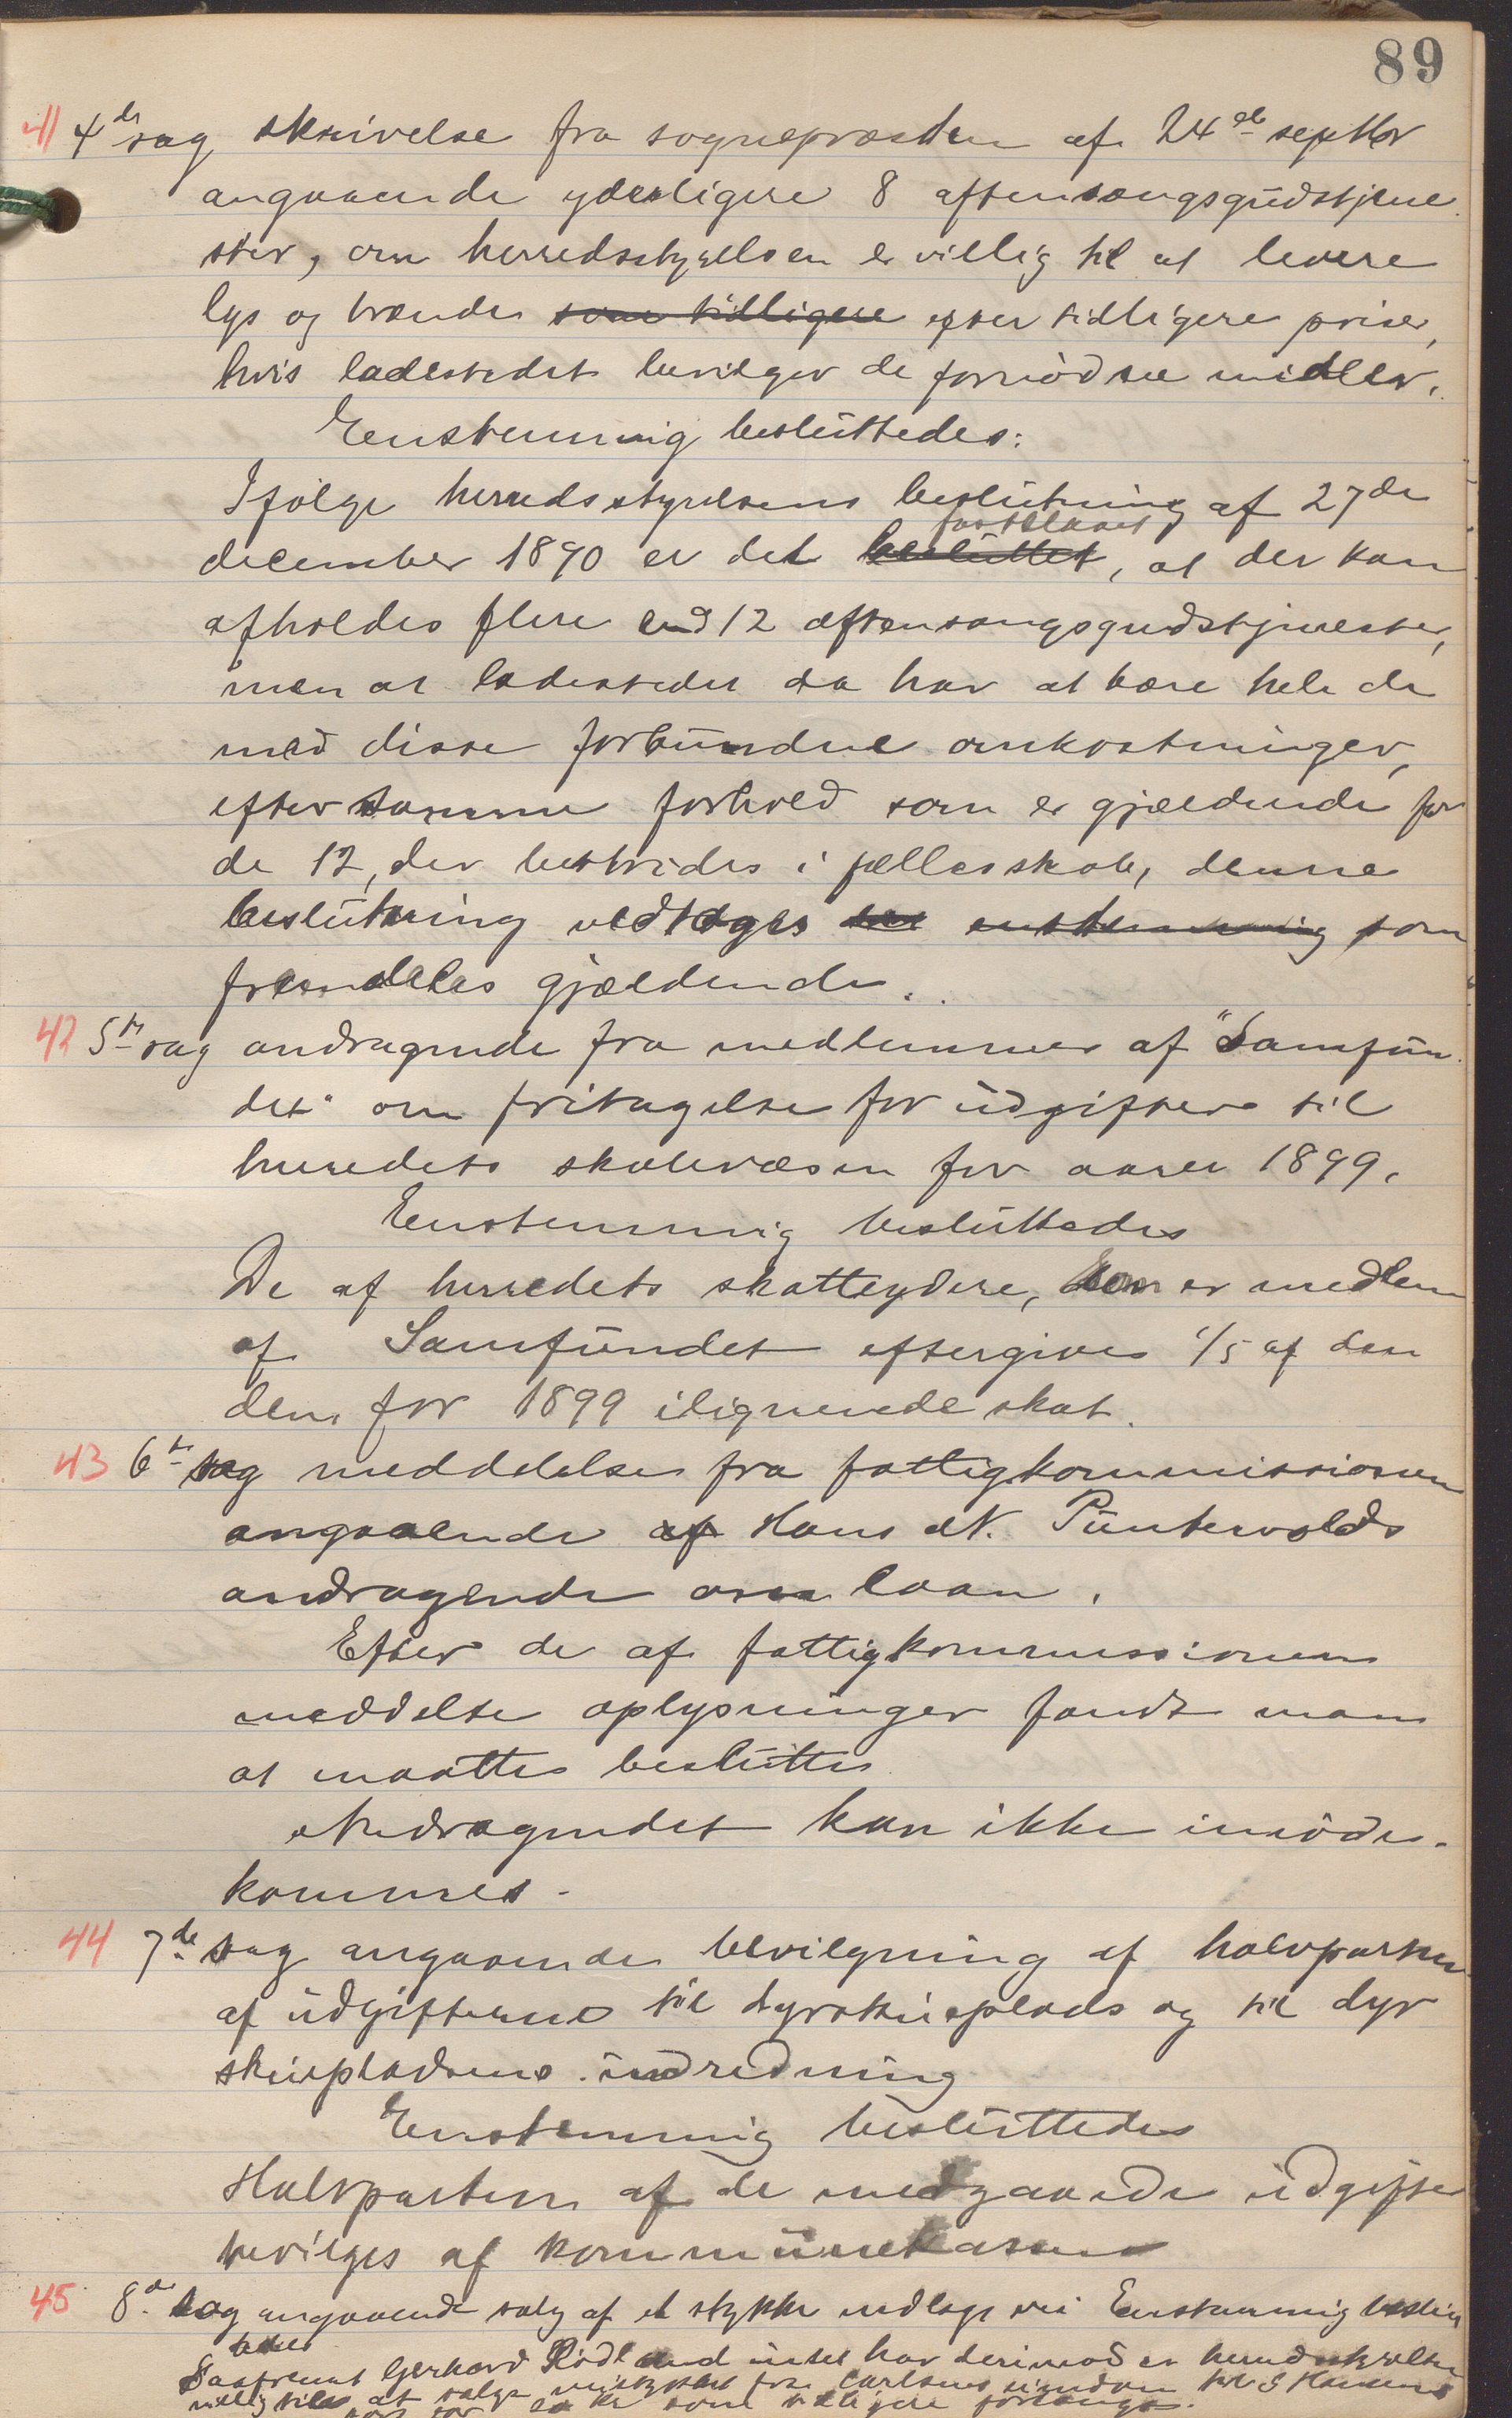 89
41 4de sag skrivelse fra sognepræsten af 24de septbr
angaaende yderligere 8 aftensangsgudstjene
ster, om herredsstyrelsen er villig til at levere
lys og brænde som tidligere efter tidligere priser,
hvis ladestedet bevilger de fornødne midler.
Enstemmig besluttedes:
Ifølge herredsstyrelsens beslutning af 27de
fastslaaet
december 1890 er det besluttet, at der kan
afholdes flere end 12 aftensangsgudstjenester,
men at ladestedet da har at bære hele de
med disse forbundne omkostninger,
efter samme forhold som er gjældende for
de 12, der bestrides i fællesskab, denne
beslutning vedtages enstemmig som
fremdeles gjældende.
42 5te sag andragende fra medlemmer af "Samfun
det" om fritagelse for udgifter til
herredets skolevæsen for aaret 1899.
Enstemmig besluttedes
De af herredets skatteydere, som er medlem
af Samfundet eftergives 1/5 af den
dem for 1899 ilignede skat.
43 6te sag meddelelse fra fattigkommissionen
angaaende af Hans N. Puntervolds
andragende om laan.
Efter de af fattigkommissionen
meddelte oplysninger fandt man
at maatte beslutte
Andragendet kan ikke imøde-
kommes.
44 7de sag angaaende bevilgning af halvparten
af udgifterne til dyrskueplads og til dyr
skuepladsens indredning
Enstemmig besluttedes
Halvparten af de medgaaede udgifter
bevilges af kommunekassen
45 8de sag angaaende salg af et stykke nedlagt vei Enstemmig beslut
tedes
Saafremt Gerhard Rødland intet har derimod er herredsstyrelsen
villig til at salge veistykket fra Carlsens eiendom til S Hansens
som tidligere forlangt.